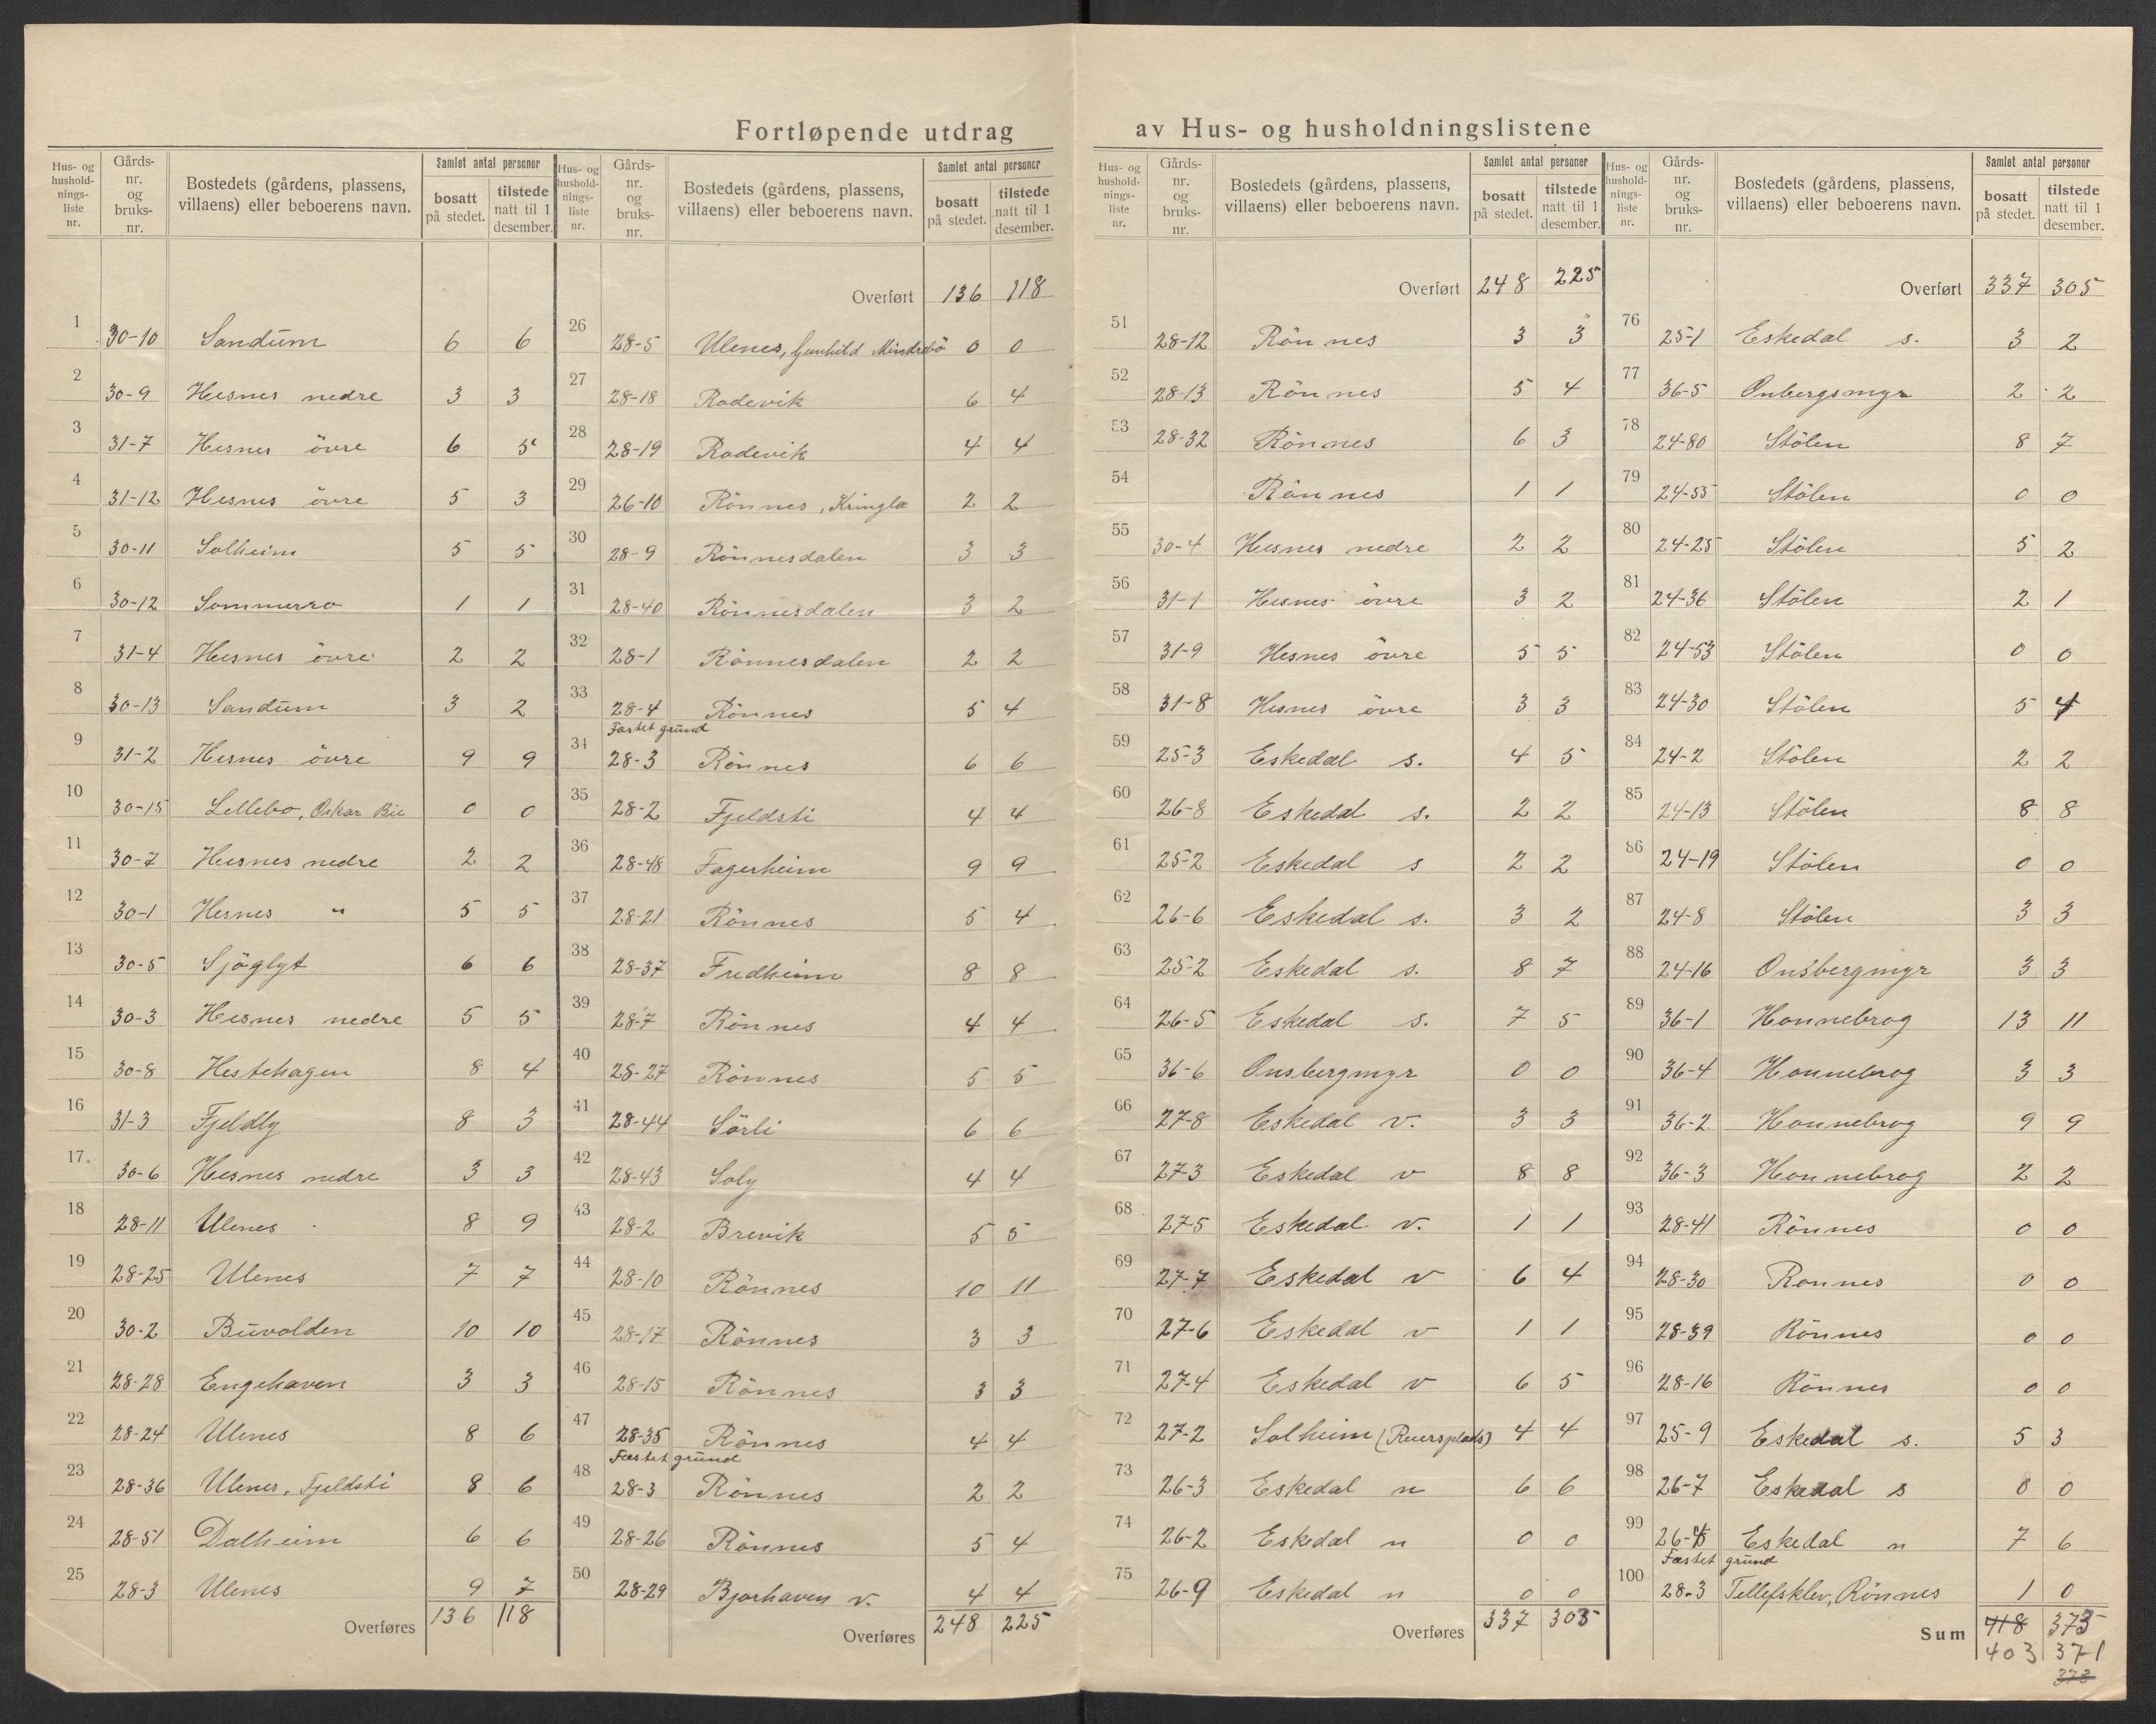 Fortløpende utdrag av Hus- og husholdningslistene
Hus- og husholdnings-liste nr. | Gårds-nr. og bruks-nr. | Bostedets (gårdens, plassens, villaens) eller beboerens navn. | Samlet antal personer bosatt på stedet. | tilstede natt til 1 desember.
1 30-10 Sandum 6 6
2 30-9 Hesnes nedre 3 3
3 31-7 Hesnes övre 6 5
4 31-12 Hesnes övre 5 3
5 30-11 Solheim 5 5
6 30-12 Sommerro 1 1
7 31-4 Hesnes övre 2 2
8 30-13 Sandum 3 2
9 31-2 Hesnes övre 9 9
10 30-15 Lellebo, Oskar Bie 0 0
11 30-7 Hesnes nedre 2 2
12 30-1 Hesnes " 5 5
13 30-5 Sjöglyt 6 6
14 30-3 Hesnes nedre 5 5
15 30-8 Hestehagen 8 4
16 31-3 Fjeldly 8 3
17 30-6 Hesnes nedre 3 3
18 28-11 Ulenes 8 9
19 28-25 Ulenes 7 7
20 30-2 Buvolden 10 10
21 28-28 Engehaven 3 3
22 28-24 Ulenes 8 6
23 28-36 Ulenes, Fjeldsti 8 6
24 28-51 Dalheim 6 6
25 28-3 Ulenes 9 7
Overføres 136 118
Hus- og husholdnings-liste nr. | Gårds-nr. og bruks-nr. | Bostedets (gårdens, plassens, villaens) eller beboerens navn. | Samlet antal personer bosatt på stedet. | tilstede natt til 1 desember.
Overført 136 118
26 28-5 Ulenes, Gunhild Mindrebö 0 0
27 28-18 Rodevik 6 4
28 28-19 Rodevik 4 4
29 26-10 Rönnes, Kringla 2 2
30 28-9 Rönnesdalen 3 3
31 28-40 Rönnesdalen 3 2
32 28-1 Rönnesdalen 2 2
33 28-4 Rönnes 5 4
Fæstet grund
34 28-3 Rönnes 6 6
35 28-2 Fjeldsti 4 4
36 28-48 Fagerheim 9 9
37 28-21 Rönnes 5 4
38 28-37 Fredheim 8 8
39 28-7 Rönnes 4 4
40 28-27 Rönnes 5 5
41 28-44 Sörli 6 6
42 28-43 Soly 4 4
43 28-2 Brevik 5 5
44 28-10 Rönnes 10 11
45 28-17 Rönnes 3 3
46 28-15 Rönnes 3 3
47 28-35 Rönnes 4 4
Fæstet grund
48 28-3 Rönnes 2 2
49 28-26 Rönnes 5 4
50 28-29 Bjorhaven v. 4 4
Overføres 248 225
Hus- og husholdnings-liste nr. | Gårds-nr. og bruks-nr. | Bostedets (gårdens, plassens, villaens) eller beboerens navn. | Samlet antal personer bosatt på stedet. | tilstede natt til 1 desember.
Overført 248 225
51 28-12 Rönnes 3 3
52 28-13 Rönnes 5 4
53 28-32 Rönnes 6 3
54 Rönnes 1 1
55 30-4 Hesnes nedre 2 2
56 31-1 Hesnes övre 3 2
57 31-9 Hesnes övre 5 5
58 31-8 Hesnes övre 3 3
59 25-3 Eskedal s. 4 5
60 26-8 Eskedal s. 2 2
61 25-2 Eskedal s 2 2
62 26-6 Eskedal s. 3 2
63 25-2 Eskedal s. 8 7
64 26-5 Eskedal s. 7 5
65 36-6 Onsbergmyr 0 0
66 27-8 Eskedal v. 3 3
67 27-3 Eskedal v 8 8
68 27-5 Eskedal v. 1 1
69 27-7 Eskedal v 6 4
70 27-6 Eskedal v 1 1
71 27-4 Eskedal v 6 5
72 27-2 Solheim (Ruersplads) 4 4
73 26-3 Eskedal n 6 6
74 26-2 Eskedal n 0 0
75 26-9 Eskedal n 0 0
Overføres 337 305
Hus- og husholdnings-liste nr. | Gårds-nr. og bruks-nr. | Bostedets (gårdens, plassens, villaens) eller beboerens navn. | Samlet antal personer bosatt på stedet. | tilstede natt til 1 desember.
Overført 337 305
76 25-1 Eskedal s. 3 2
77 36-5 Onbergsmyr 2 2
78 24-80 Stölen 8 7
79 24-55 Stölen 0 0
80 24-25 Stölen 5 2
81 24-36 Stölen 2 1
82 24-53 Stölen 0 0
83 24-30 Stölen 5 4
84 24-2 Stölen 2 2
85 24-13 Stölen 8 8
86 24-19 Stölen 0 0
87 24-8 Stölen 3 3
88 24-16 Onsbergmyr 3 3
89 36-1 Honnebrog 13 11
90 36-4 Honnebrog 3 3
91 36-2 Honnebrog 9 9
92 36-3 Honnebrog 2 2
93 28-41 Rönnes 0 0
94 28-30 Ronnes 0 0
95 28-39 Rönnes 0 0
96 28-16 Rönnes 0 0
97 25-9 Eskedal s. 5 3
98 26-7 Eskedal s 0 0
99 26- Eskedal n 7 6
Fæstet grund
100 28-3 Tellefsklev, Rönnes 1 0
Sum 418 373
403 371
373